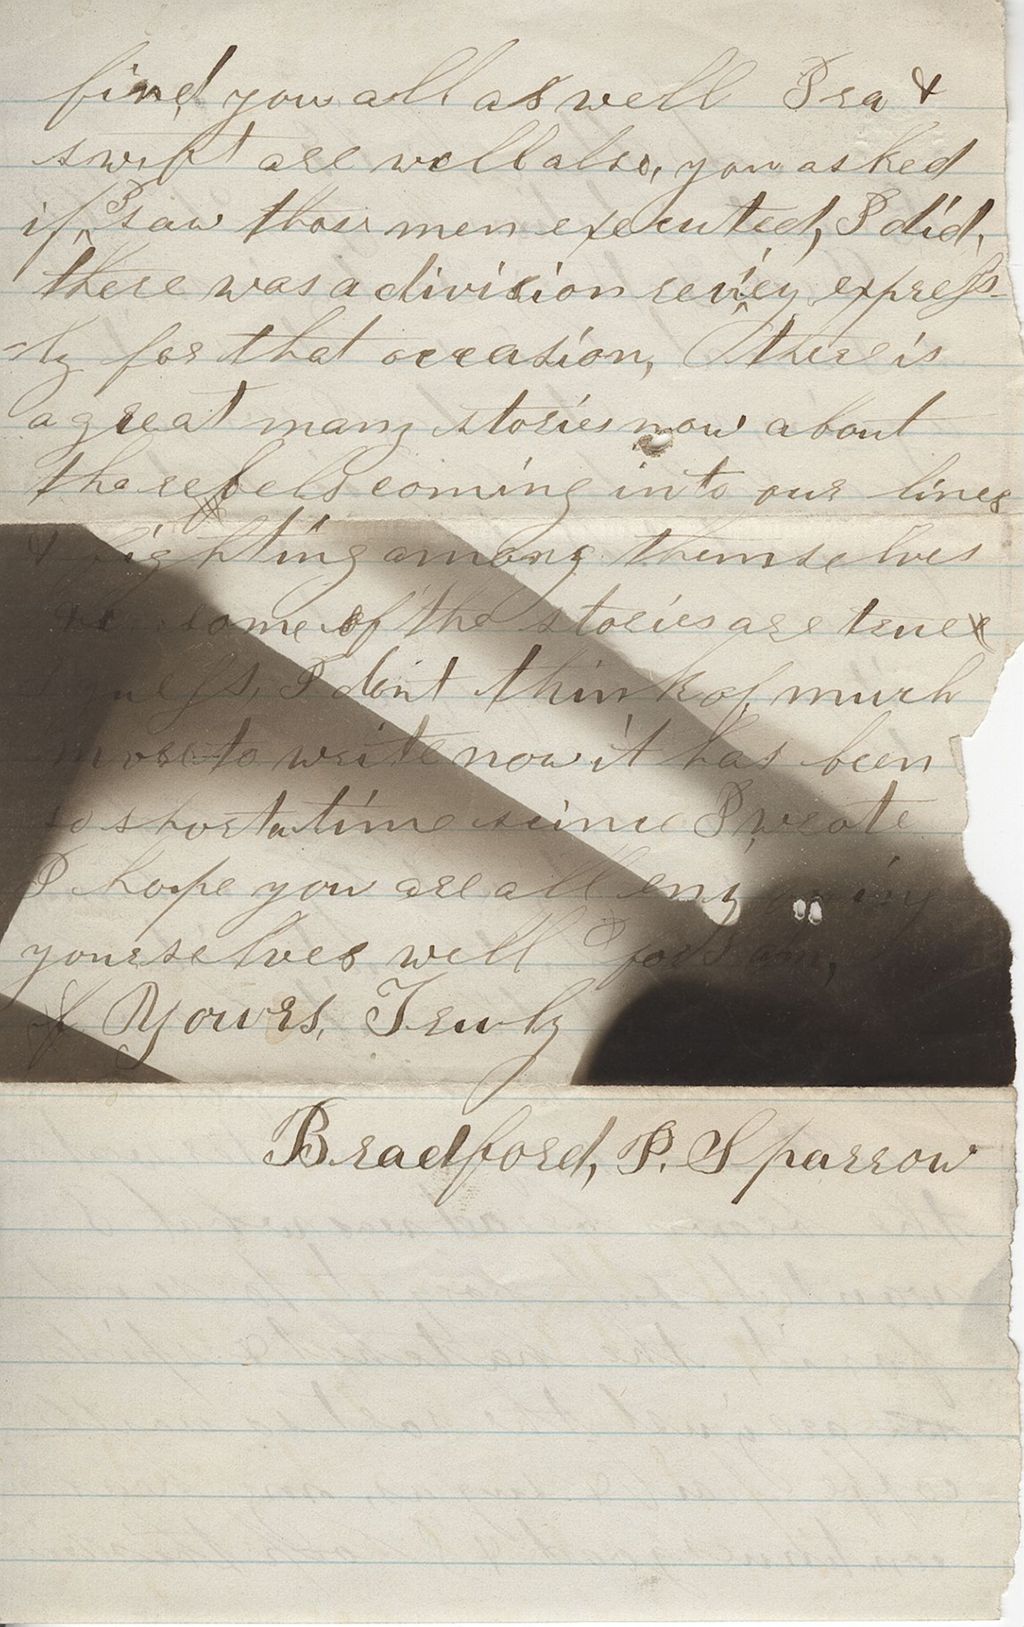 find you all as well Ira &
swift are well also, you asked
if I saw those men executed, I did,
there was a division reviey express-
-ly for that occasion, there is
a great many stories now about
the rebels coming into our lines
& fighting among themselves
some of the stories are true
I guess, I dont think of much
more to write now it has been
so short a time since I wrote
I hope you are all enjoying
yourselves well I for am,
Yours, Truly
Bradford, P. Sparrow